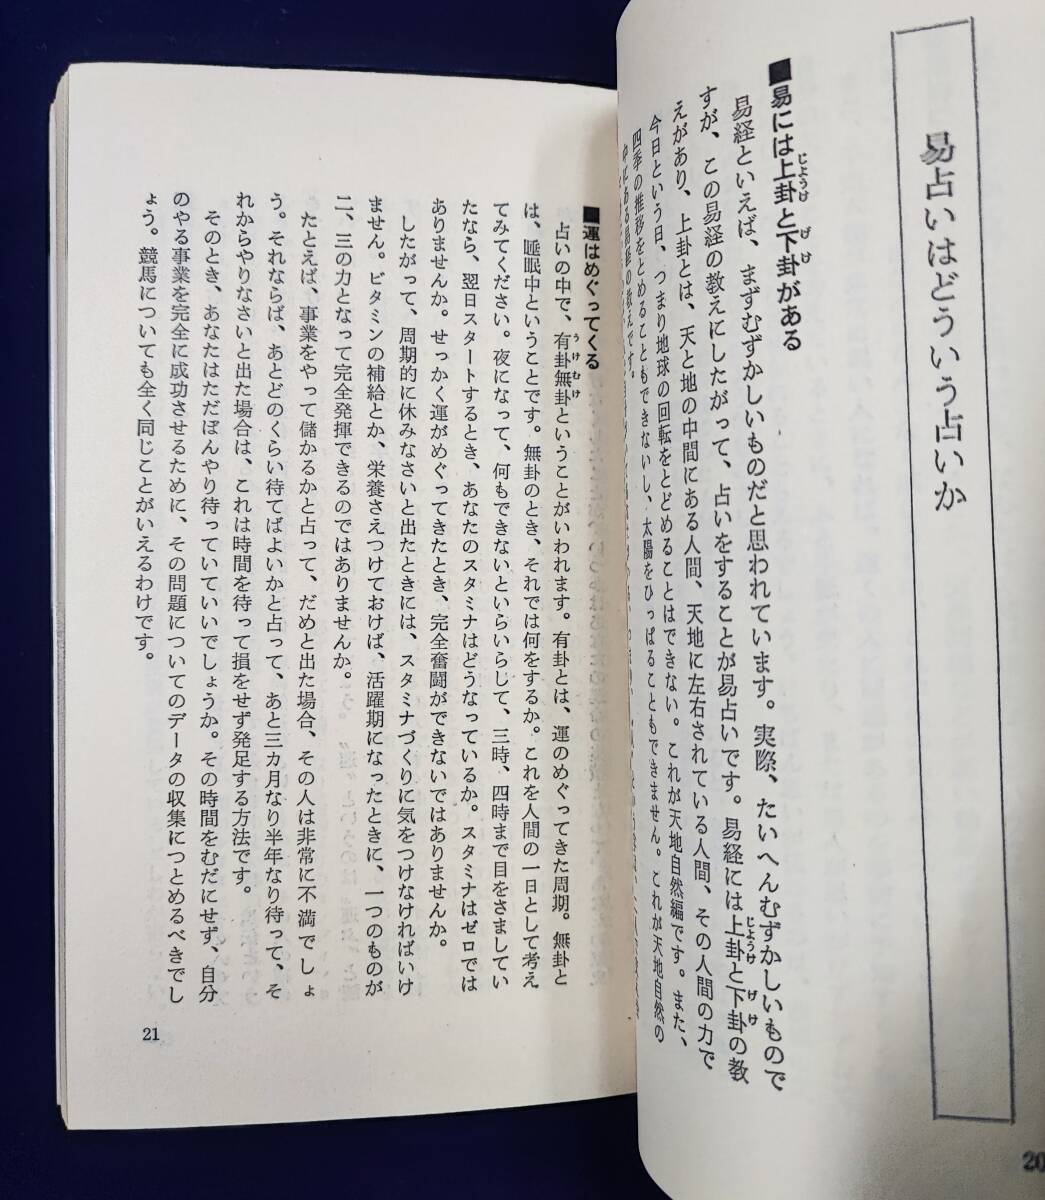 易占いはどういう占いか
■易には上卦と下卦がある
じようけ
げけ
易経といえば、まずむずかしいものだと思われています。実際、たいへんむずかしいもので
すが、この易経の教えにしたがって、占いをすることが易占いです。易経には上卦と下卦の教
じようけ
げけ
えがあり、上卦とは、天と地の中間にある人間、天地に左右されている人間、その人間の力で
今日という日、つまり地球の回転をとどめることはできない。これが天地自然編です。また、
四季の推移をとめることもできないし、太陽をひっぱることもできません。これが天地自然の
中にある易経の教えです。
20
■運はめぐってくる
占いの中で、有卦無卦ということがいわれます。有卦とは、運のめぐってきた周期。無卦と
うけむけ
は、睡眠中ということです。無卦のとき、それでは何をするか。これを人間の一日として考え
てみてください。夜になって、何もできないといらいらして、三時、四時まで目をさましてい
たなら、翌日スタートするとき、あなたのスタミナはどうなっているか。スタミナはゼロでは
ありませんか。せっかく運がめぐってきたとき、完全奮闘ができないではありませんか。
したがって、周期的に休みなさいと出たときには、スタミナづくりに気をつけなければいけ
ません。ビタミンの補給とか、栄養さえつけておけば、活躍期になったときに、一つのものが
二、三の力となって完全発揮できるのではありませんか。
たとえば、事業をやって儲かるかと占って、だめと出た場合、その人は非常に不満でしょ
う。それならば、あとどのくらい待てばよいかと占って、あと三カ月なり半年なり待って、そ
れからやりなさいと出た場合は、これは時間を待って損をせず発足する方法です。
そのとき、あなたはただぼんやり待っていていいでしょうか。その時間をむだにせず、自分
のやる事業を完全に成功させるために、その問題についてのデータの収集につとめるべきでし
ょう。競馬についても全く同じことがいえるわけです。
21